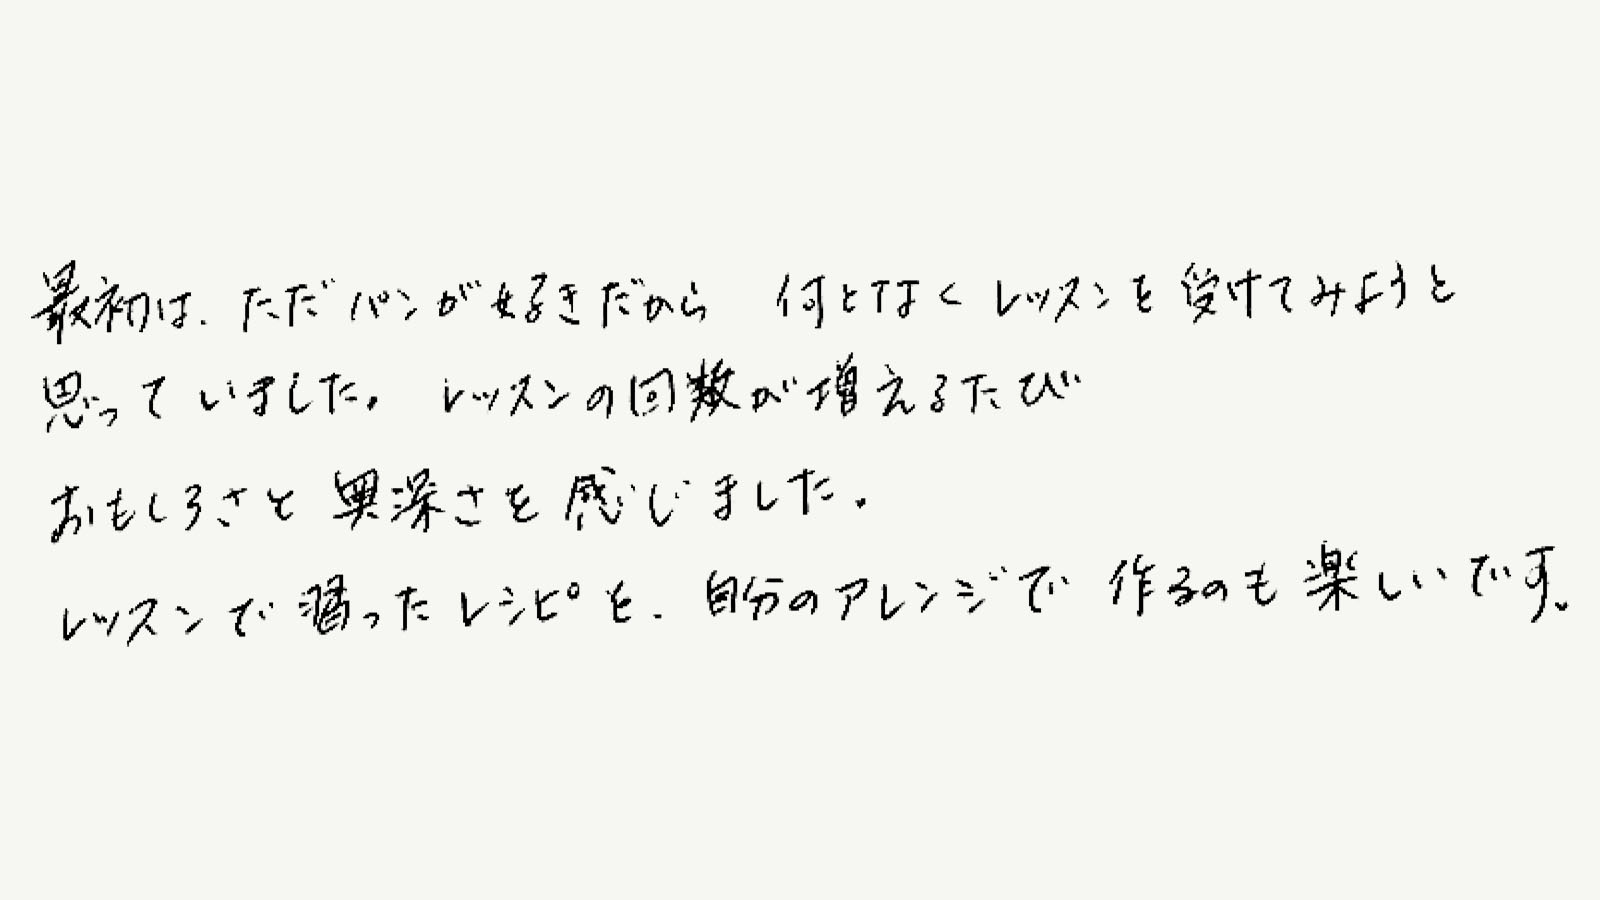 最初は、ただパンが好きだから 何となく レッスンを受けてみようと
思っていました。 レッスンの回数が増えるたび
おもしろさと奥深さを感じました。
レッスンで習ったレシピを、自分のアレンジで作るのも楽しいです。